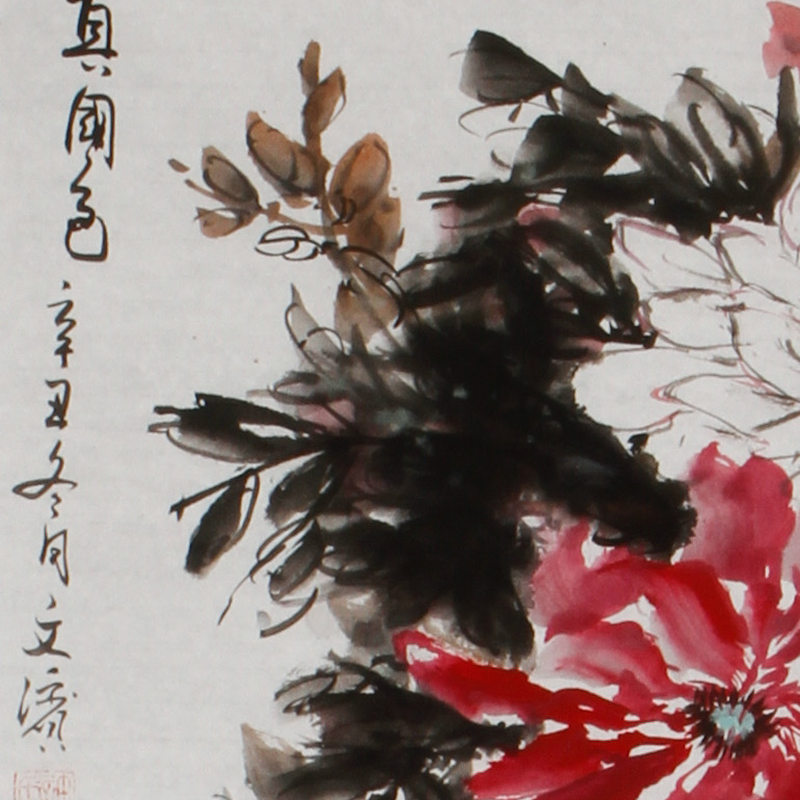 真國色辛丑冬月文濱